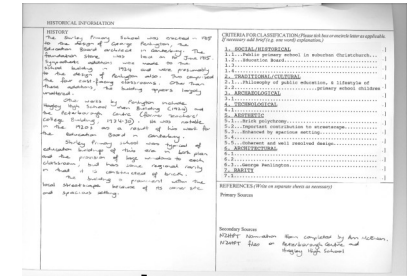 HISTORICAL INFORMATION
HISTORY
The Shirley Primary School was erected in 1915
to the design of George Penlington, the
Education Board architect in Canterbury. The
foundation stone was laid on 19 June 1915.
Sympathetic additions were made to the
school building in 1924 and were presumably
to the design of Penlington also. This comprised
the four east-facing classrooms. Other than
these additions, the building appears largely
unaltered.
Other works by Penlington include
Hagley High School Main Building (1924) and
the Peterborough Centre (former Teachers'
College Building, 1924-30). He was notable
in the 1920s as a result of his work for
the Education Board in Canterbury.
Shirley Primary School was typical of
education buildings of this era in both plan
and the provision of large windows to each
classroom, but has some regional rarity
in that it is constructed of brick.
The building is prominent within the
local streetscape because of its
and spacious setting.
CRITERIA FOR CLASSIFICATION (Please tick box or circle letter as applicable,
if necessary add brief (e.g. one word) explanation.)
1. SOCIAL/HISTORICAL
1.1...Public primary school in suburban Christchurch...
1.2...Education Board...
1.3...
1.4...
2. TRADITIONAL/CULTURAL
2.1...Philosophy of public education, & lifestyle of
2.2...primary school children
3. ARCHAEOLOGICAL
3.1...
4. TECHNOLOGICAL
4.1...
5. AESTHETIC
5.1...Brick polychromy
5.2...Important contribution to streetscape...
5.3...Enhanced by spacious setting...
5.4...
5.5...Coherent and well resolved design...
6. ARCHITECTURAL
6.1...
6.2...
6.3...George Penlington...
7. RARITY
7.1...
REFERENCES: (Write on separate sheets as necessary)
Primary Sources
Secondary Sources
NZHPT Nomination form completed by Ann McEwan.
NZHPT files on Peterborough Centre and
Hagley High School